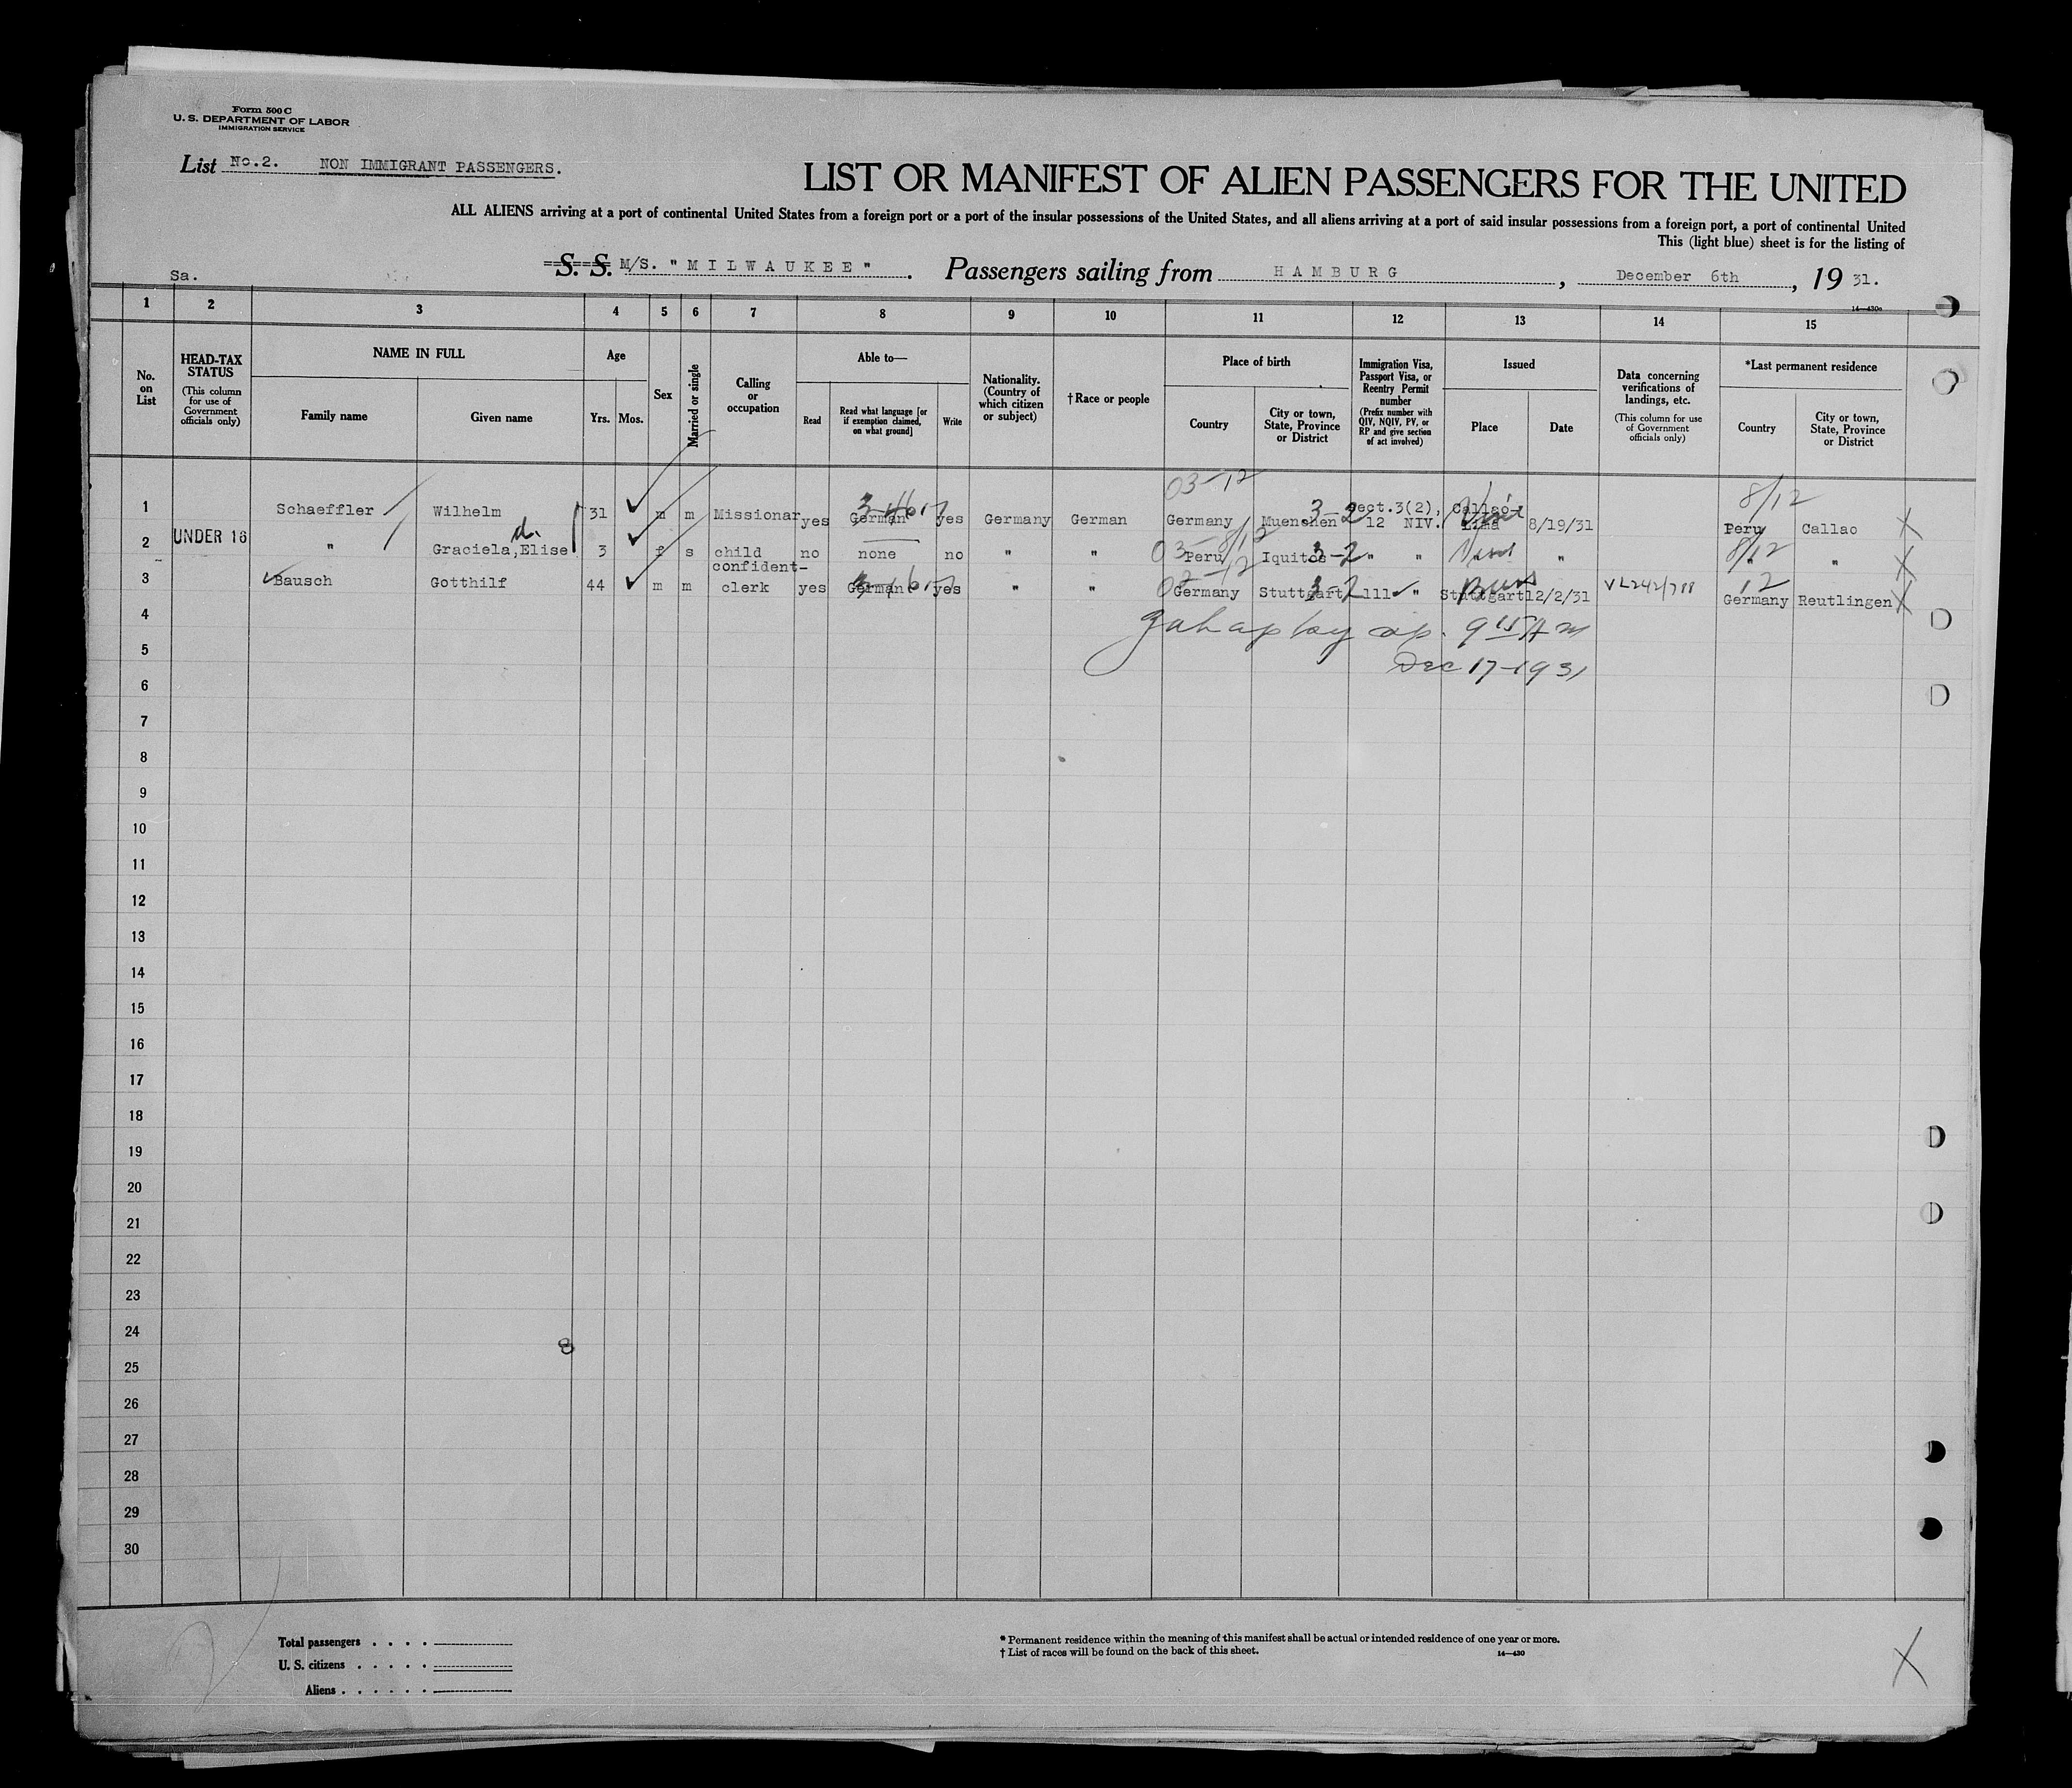 Form 500 C
U. S. DEPARTMENT OF LABOR
IMMIGRATION SERVICE
List No.2. NON IMMIGRANT PASSENGERS.
LIST OR MANIFEST OF ALIEN PASSENGERS FOR THE UNITED
ALL ALIENS arriving at a port of continental United States from a foreign port or a port of the insular possessions of the United States, and all aliens arriving at a port of said insular possessions from a foreign port, a port of continental United
This (light blue) sheet is for the listing of
Sa. S. S. M/S. "MILWAUKEE". Passengers sailing from HAMBURG, December 6th, 19 31.
14—430a
1 2 3 4 5 6 7 8 9 10 11 12 13 14 15
No. on List
HEAD-TAX STATUS (This column for use of Government officials only)
NAME IN FULL
Family name Given name
Age
Yrs. Mos.
Sex
Married or single
Calling or occupation
Able to—
Read Read what language [or if exemption claimed, on what ground] Write
Nationality. (Country of which citizen or subject)
†Race or people
Place of birth
Country City or town, State, Province or District
Immigration Visa, Passport Visa, or Reentry Permit number (Prefix number with QIV, NQIV, PV, or RP and give section of act involved)
Issued
Place Date
Data concerning verifications of landings, etc. (This column for use of Government officials only)
*Last permanent residence
Country City or town, State, Province or District
03-12 8/12
1 Schaeffler Wilhelm 31 m m Missionar yes German yes Germany German Germany Muenchen 3-2 Sect.3(2), 12 NIV. Callao Lima 8/19/31 Peru Callao X
2 UNDER 16 " Graciela,Elise d. 3 f s child no none no " " 03-8/12 Peru Iquitos 3-2 " " " 8/12 " " X
3 Bausch Gotthilf 44 m m confident- clerk yes German yes " " Germany Stuttgart 3-2 111 " Stuttgart 12/2/31 VL242/788 12 Germany Reutlingen X
4 9 15 AM
5 Dec 17-1931
6
7
8
9
10
11
12
13
14
15
16
17
18
19
20
21
22
23
24
8
25
26
27
28
29
30
Total passengers . . . .
U. S. citizens . . . . .
Aliens . . . . . .
* Permanent residence within the meaning of this manifest shall be actual or intended residence of one year or more.
† List of races will be found on the back of this sheet.
14—430
X